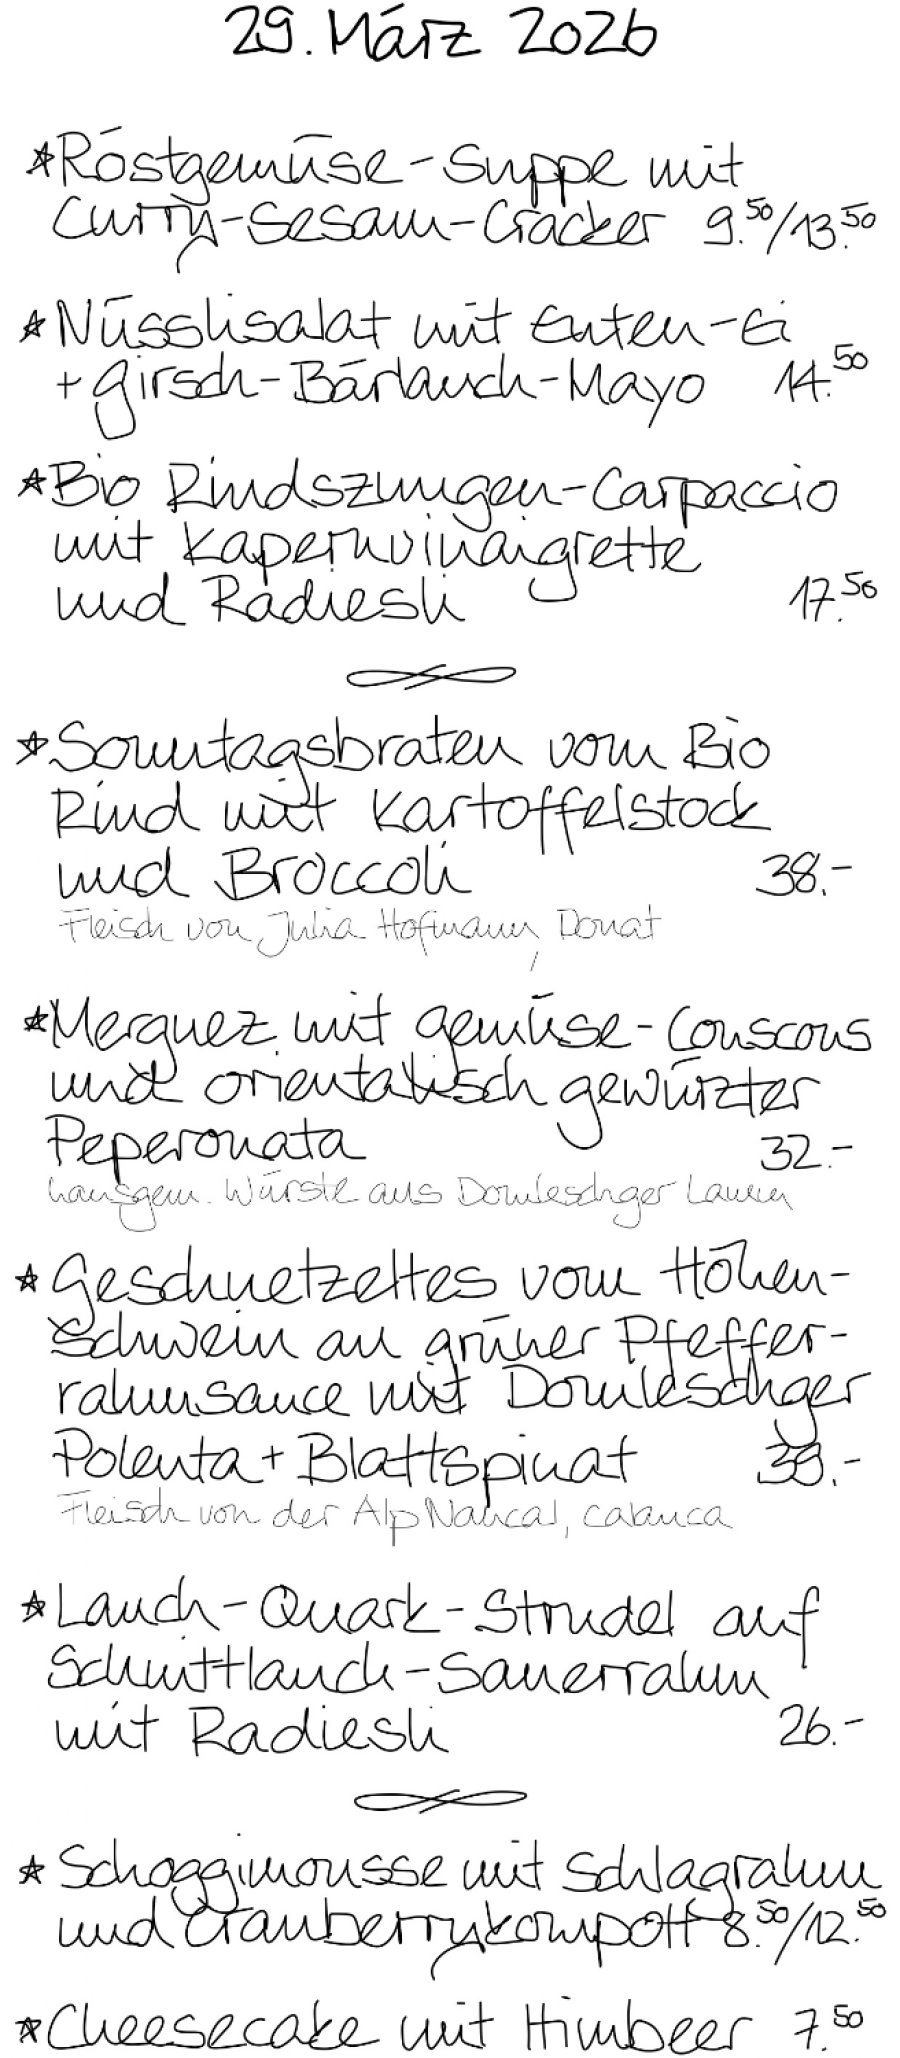 29. März 2026
*Röstgemüse-Suppe mit
Curry-Sesam-Cracker 9.50/13.50
*Nüsslisalat mit Enten-Ei
+ Girsch-Bärlauch-Mayo 14.50
*Bio Rindszungen-Carpaccio
mit Kapernvinaigrette
und Radiesli 17.50
*Sonntagsbraten vom Bio
Rind mit Kartoffelstock
und Broccoli 38.-
Fleisch von Julia Hofmann, Donat
*Merguez mit Gemüse-Couscous
und orientalisch gewürzter
Peperonata 32.-
hausgem. Würste aus Domleschger Lamm
*Geschnetzeltes vom Höhen-
Schwein an grüner Pfeffer-
rahmsauce mit Domleschger
Polenta + Blattspinat 39.-
Fleisch von der Alp Calanca
*Lauch-Quark-Strudel auf
Schnittlauch-Sauerrahm
mit Radiesli 26.-
*Schoggimousse mit Schlagrahm
und Cranberrykompott 8.50/12.50
*Cheesecake mit Himbeer 7.50